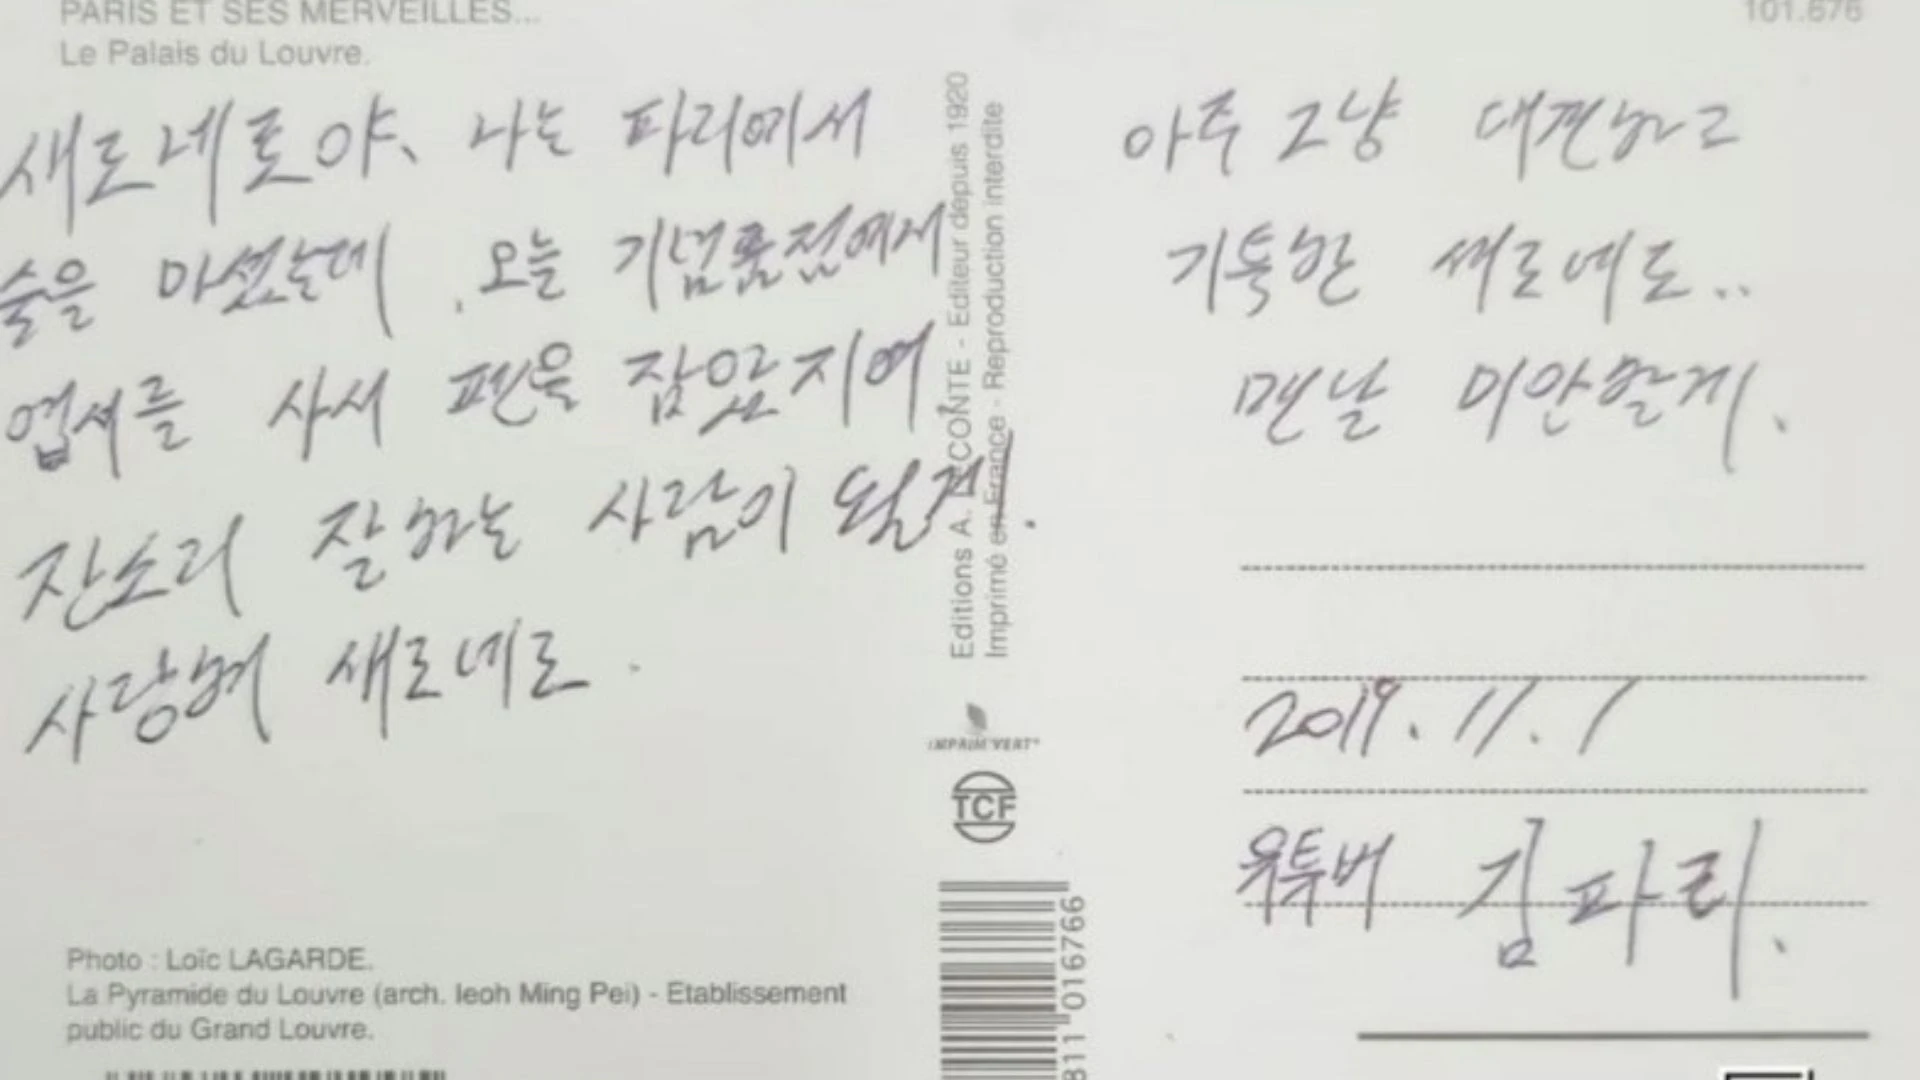 PARIS ET SES MERVEILLES...
Le Palais du Louvre.
101.676
새로네로야, 나는 파리에서
술을 마셨는데, 오늘 기념품점에서
엽서를 사서 펜을 잡았지여
잔소리 잘하는 사람이 될게.
사랑해 새로네로.
아주 그냥 대견하고
기특한 새로네로..
맨날 미안할게.
2019.11.1
유투버 김파리.
Editions A. LECONTE - Editeur depuis 1920
Imprimé en France - Reproduction interdite
IMPRIM'VERT®
TCF
811 016766
Photo : Loïc LAGARDE.
La Pyramide du Louvre (arch. Ieoh Ming Pei) - Etablissement
public du Grand Louvre.